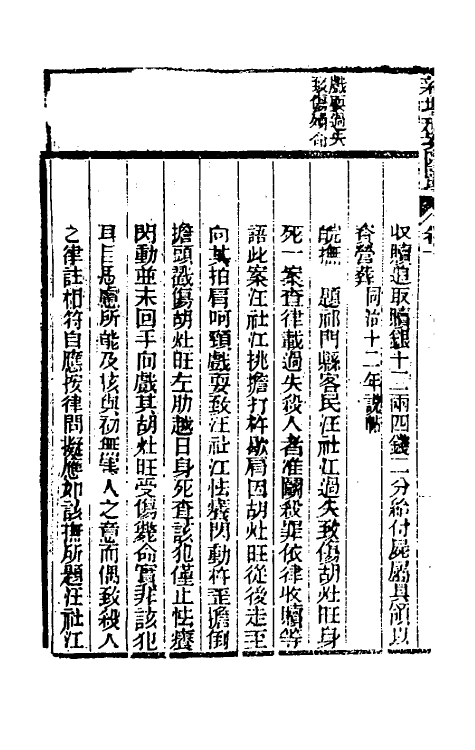 收贖追取贖銀十二兩四錢二分給付屍屬具領以
資營葬同治十二年說帖
戲耍過失
致傷殞命
皖撫　題祁門縣客民汪社江過失致傷胡灶旺身
死一案查律載過失殺人者准鬭殺罪依律收贖等
語此案汪社江挑擔打杵歇肩因胡灶旺從後走至
向其拍肩呵頸戲耍致汪社江怯癢閃動杵歪擔倒
擔頭戳傷胡灶旺左肋越日身死查該犯僅止怯癢
閃動並未回手向戲其胡灶旺受傷斃命實非該犯
耳目思慮所能及核與初無害人之意而偶致殺人
之律註相符自應按律問擬應如該撫所題汪社江